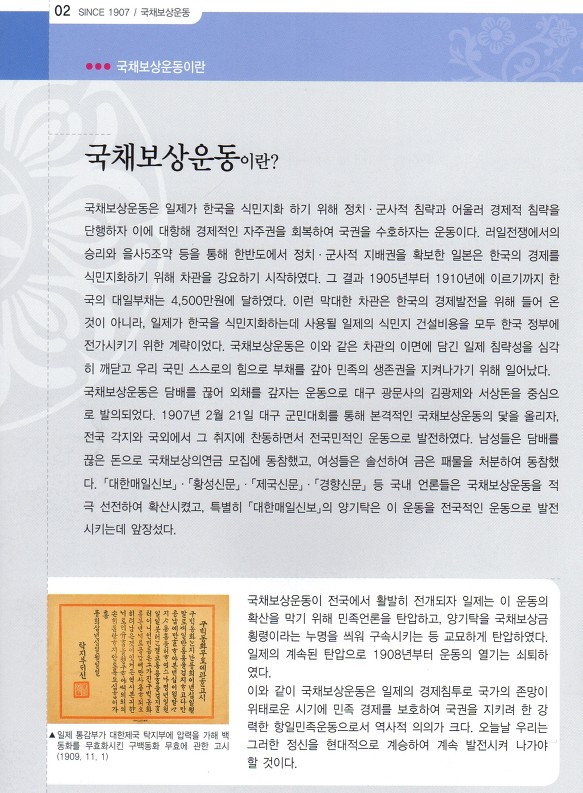 02 SINCE 1907 / 국채보상운동
국채보상운동이란
국채보상운동이란?
국채보상운동은 일제가 한국을 식민지화 하기 위해 정치·군사적 침략과 어울러 경제적 침략을
단행하자 이에 대항해 경제적인 자주권을 회복하여 국권을 수호하자는 운동이다. 러일전쟁에서의
승리와 을사5조약 등을 통해 한반도에서 정치·군사적 지배권을 확보한 일본은 한국의 경제를
식민지화하기 위해 차관을 강요하기 시작하였다. 그 결과 1905년부터 1910년에 이르기까지 한
국의 대일부채는 4,500만원에 달하였다. 이런 막대한 차관은 한국의 경제발전을 위해 들어 온
것이 아니라, 일제가 한국을 식민지화하는데 사용될 일제의 식민지 건설비용을 모두 한국 정부에
전가시키기 위한 계략이었다. 국채보상운동은 이와 같은 차관의 이면에 담긴 일제 침략성을 심각
히 깨닫고 우리 국민 스스로의 힘으로 부채를 갚아 민족의 생존권을 지켜나가기 위해 일어났다.
국채보상운동은 담배를 끊어 외채를 갚자는 운동으로 대구 광문사의 김광제와 서상돈을 중심으
로 발의되었다. 1907년 2월 21일 대구 군민대회를 통해 본격적인 국채보상운동의 닻을 올리자,
전국 각지와 국외에서 그 취지에 찬동하면서 전국민적인 운동으로 발전하였다. 남성들은 담배를
끊은 돈으로 국채보상의연금 모집에 동참했고, 여성들은 솔선하여 금은 패물을 처분하여 동참했
다. 「대한매일신보」·「황성신문」·「제국신문」·「경향신문」 등 국내 언론들은 국채보상운동을 적
극 선전하여 확산시켰고, 특별히 「대한매일신보」의 양기탁은 이 운동을 전국적인 운동으로 발전
시키는데 앞장섰다.
국채보상운동이 전국에서 활발히 전개되자 일제는 이 운동의
확산을 막기 위해 민족언론을 탄압하고, 양기탁을 국채보상금
횡령이라는 누명을 씌워 구속시키는 등 교묘하게 탄압하였다.
일제의 계속된 탄압으로 1908년부터 운동의 열기는 쇠퇴하
였다.
이와 같이 국채보상운동은 일제의 경제침투로 국가의 존망이
위태로운 시기에 민족 경제를 보호하여 국권을 지키려 한 강
력한 항일민족운동으로서 역사적 의의가 크다. 오늘날 우리는
그러한 정신을 현대적으로 계승하여 계속 발전시켜 나가야
할 것이다.
▲ 일제 통감부가 대한제국 탁지부에 압력을 가해 백
동화를 무효화시킨 구백동화 무효에 관한 고시
(1909. 11. 1)